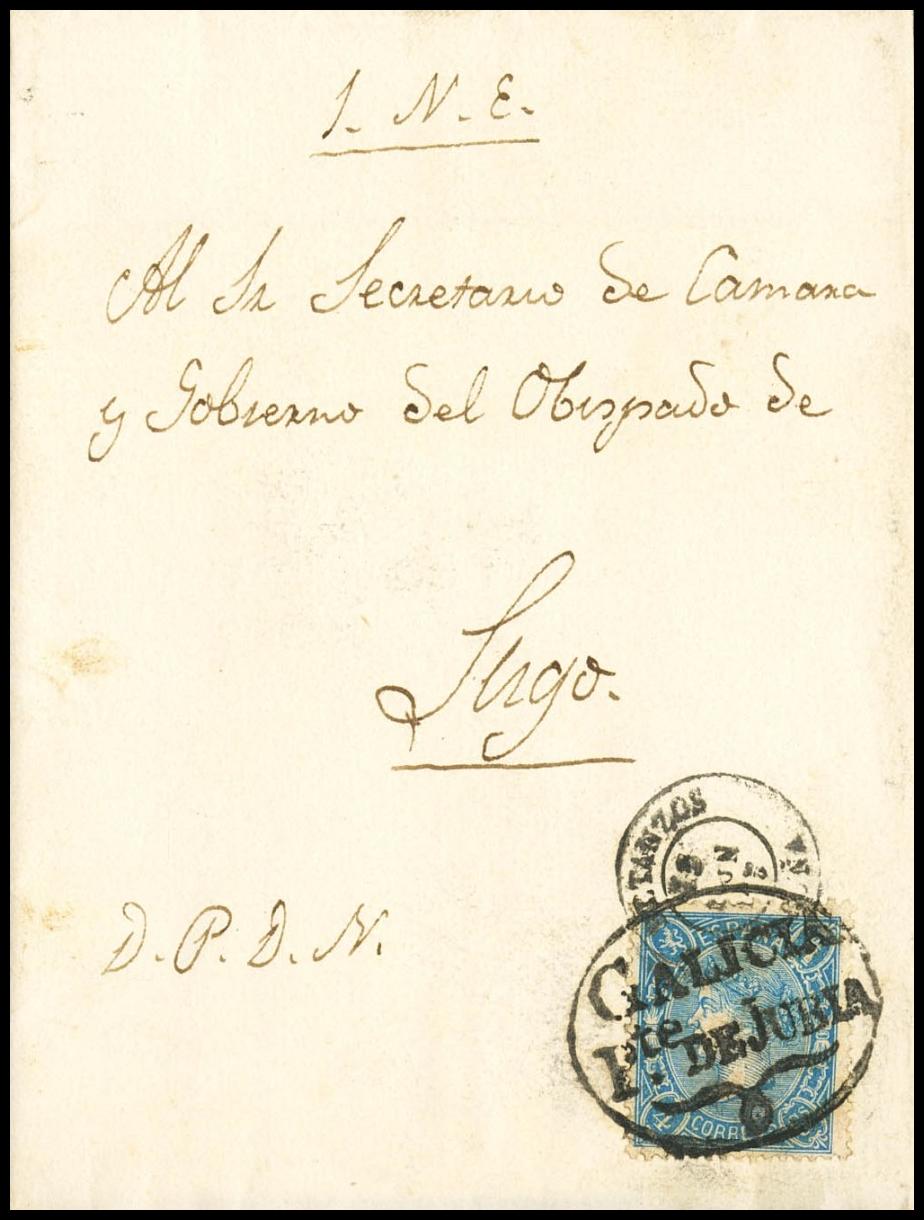 I. N. E.
Al Sr Secretario de Camara
y Gobierno del Obispado de
Lugo.
D. P. D. N.
ETANZOS
GALICIA
Pte. DE JUBIA
ESPAÑA
4 CORREOS